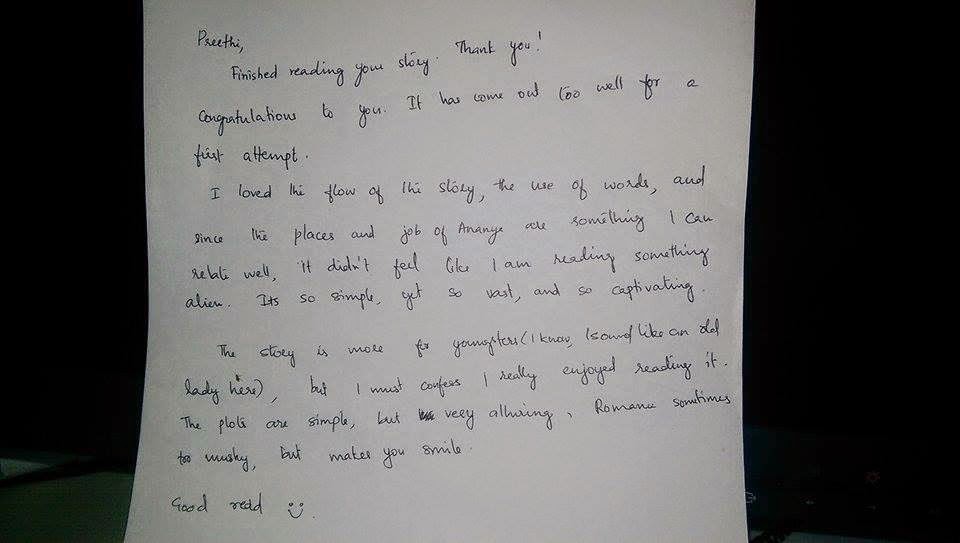 Preethi,
Finished reading your story. Thank you!
Congratulations to you. It has come out too well for a
first attempt.
I loved the flow of the story, the use of words, and
since the places and job of Ananya are something I can
relate well, it didn't feel like I am reading something
alien. Its so simple, yet so vast, and so captivating.
The story is more for youngsters (I know, I sound like an old
lady here), but I must confess I really enjoyed reading it.
The plots are simple, but very alluring, Romance sometimes
too mushy, but makes you smile.
Good read :)